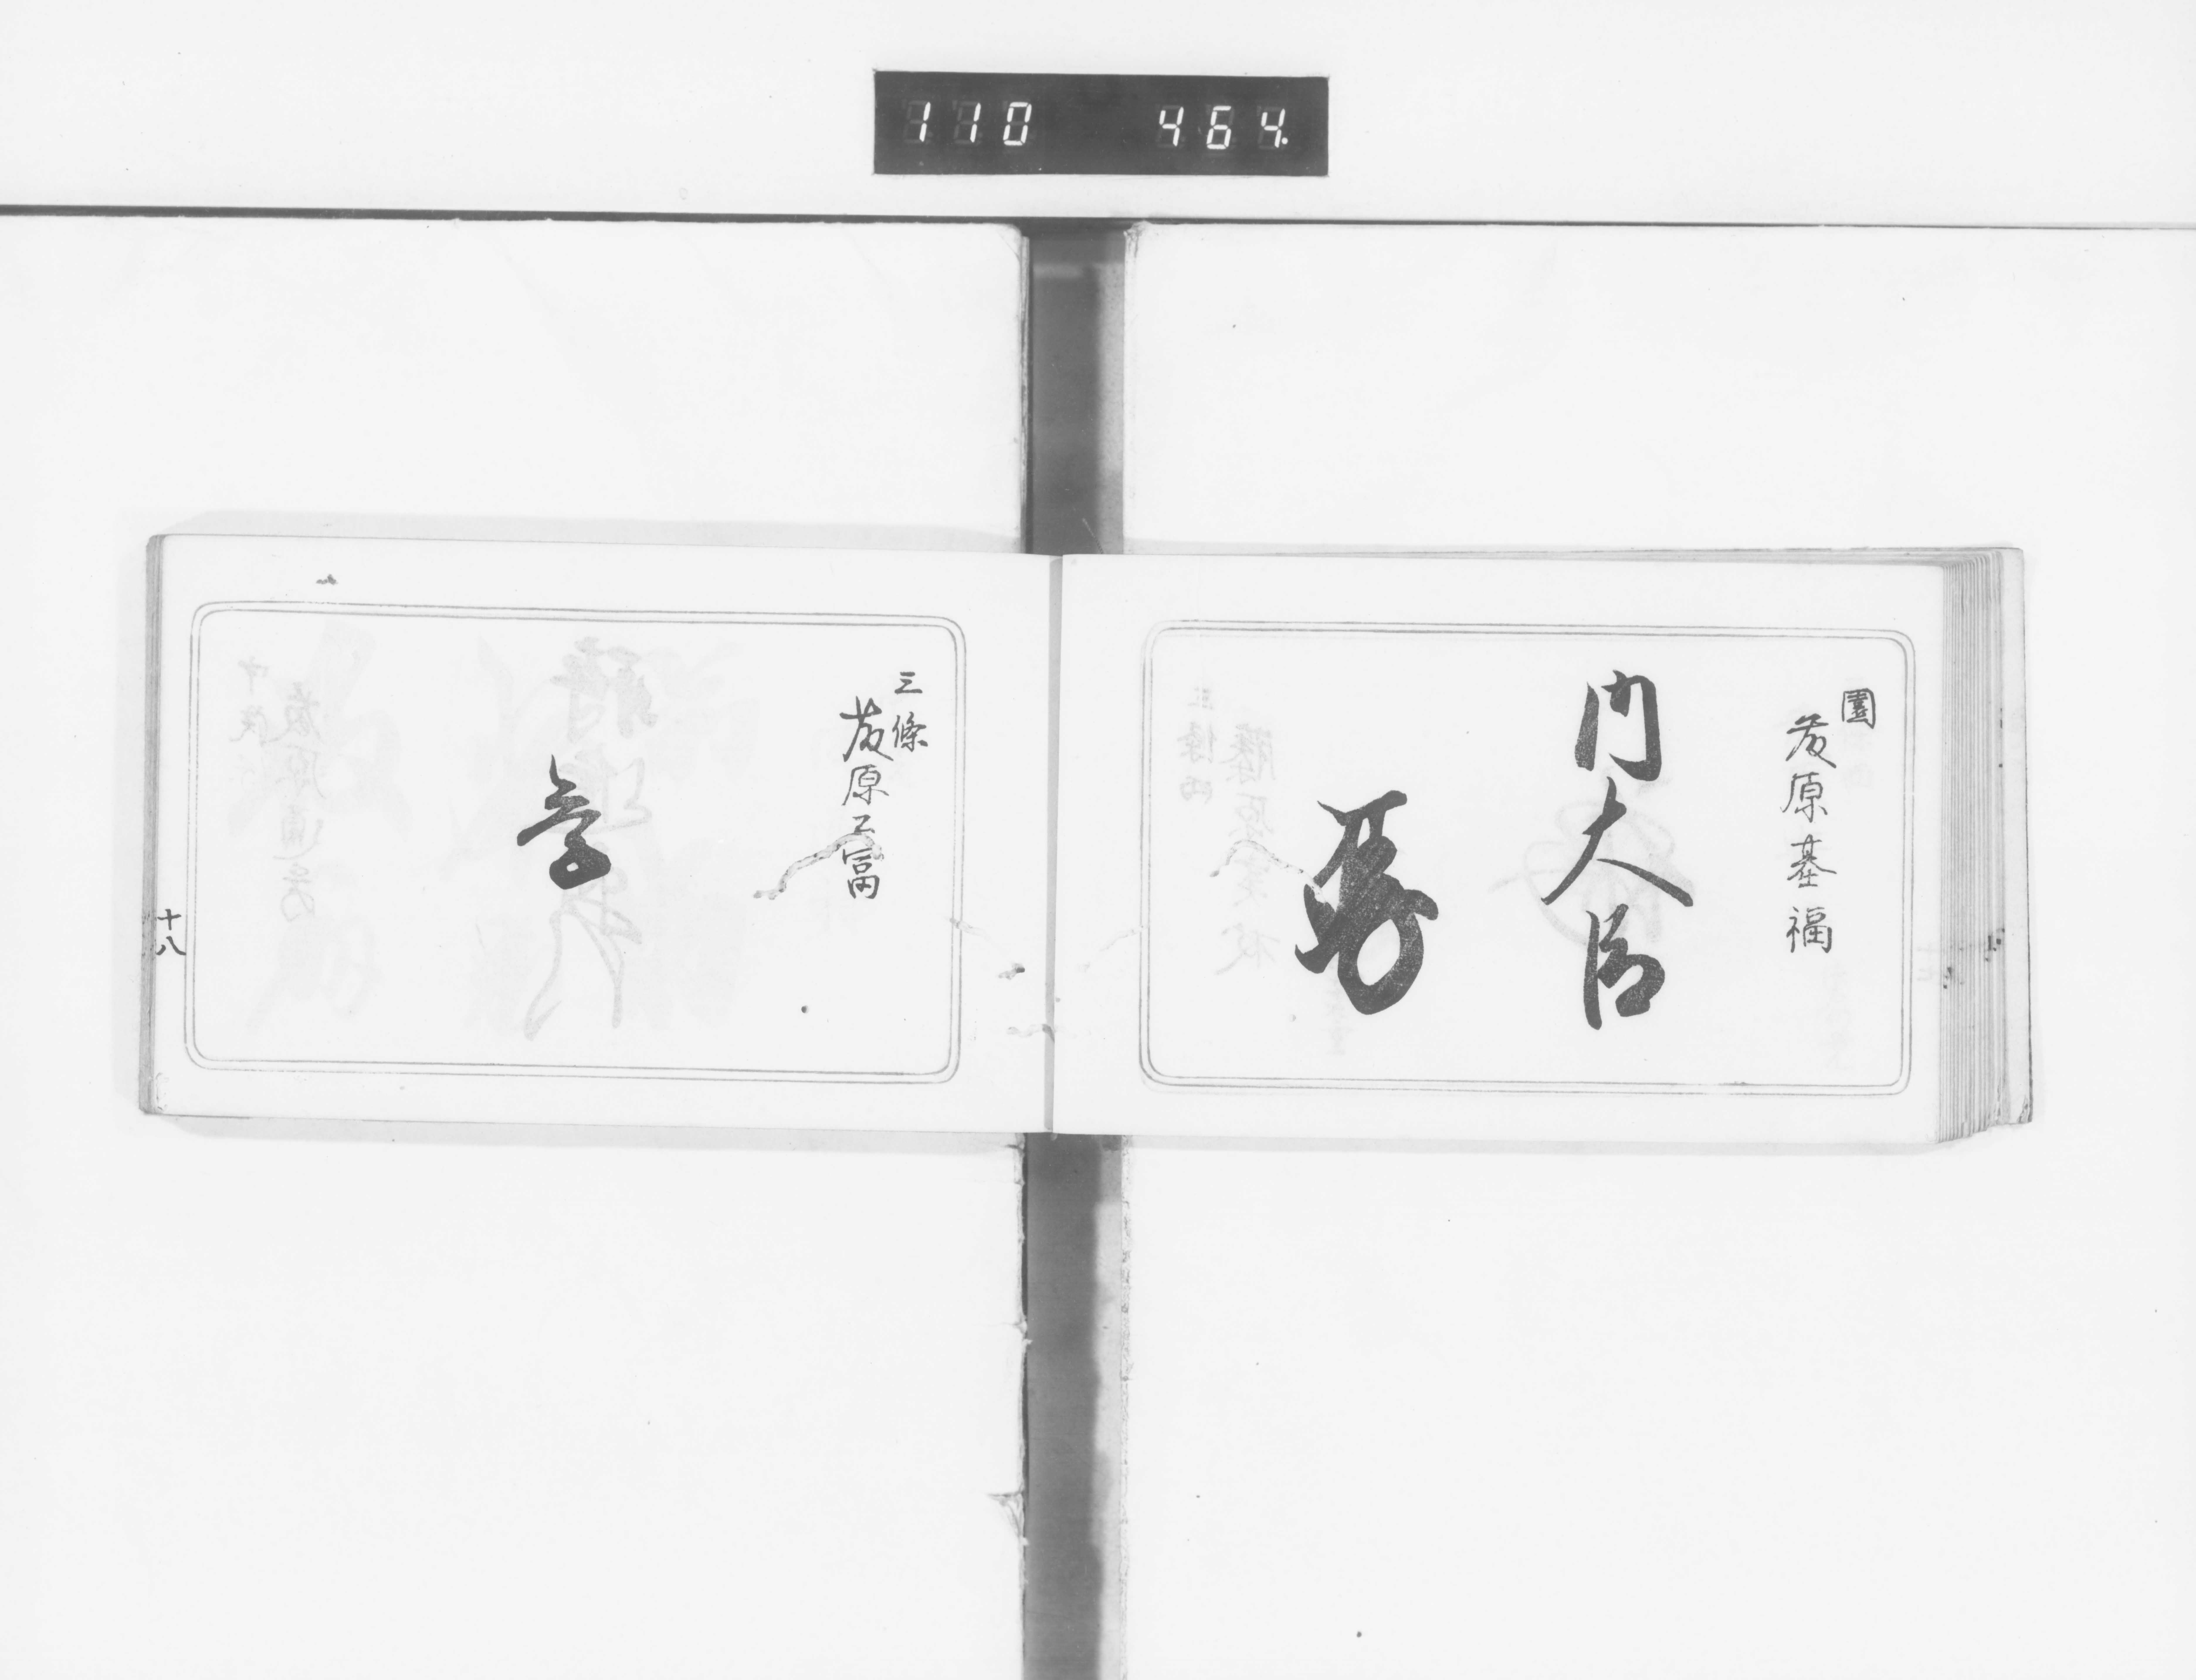 110 464
園
藤原基福
内大臣
三條
藤原公富
十八